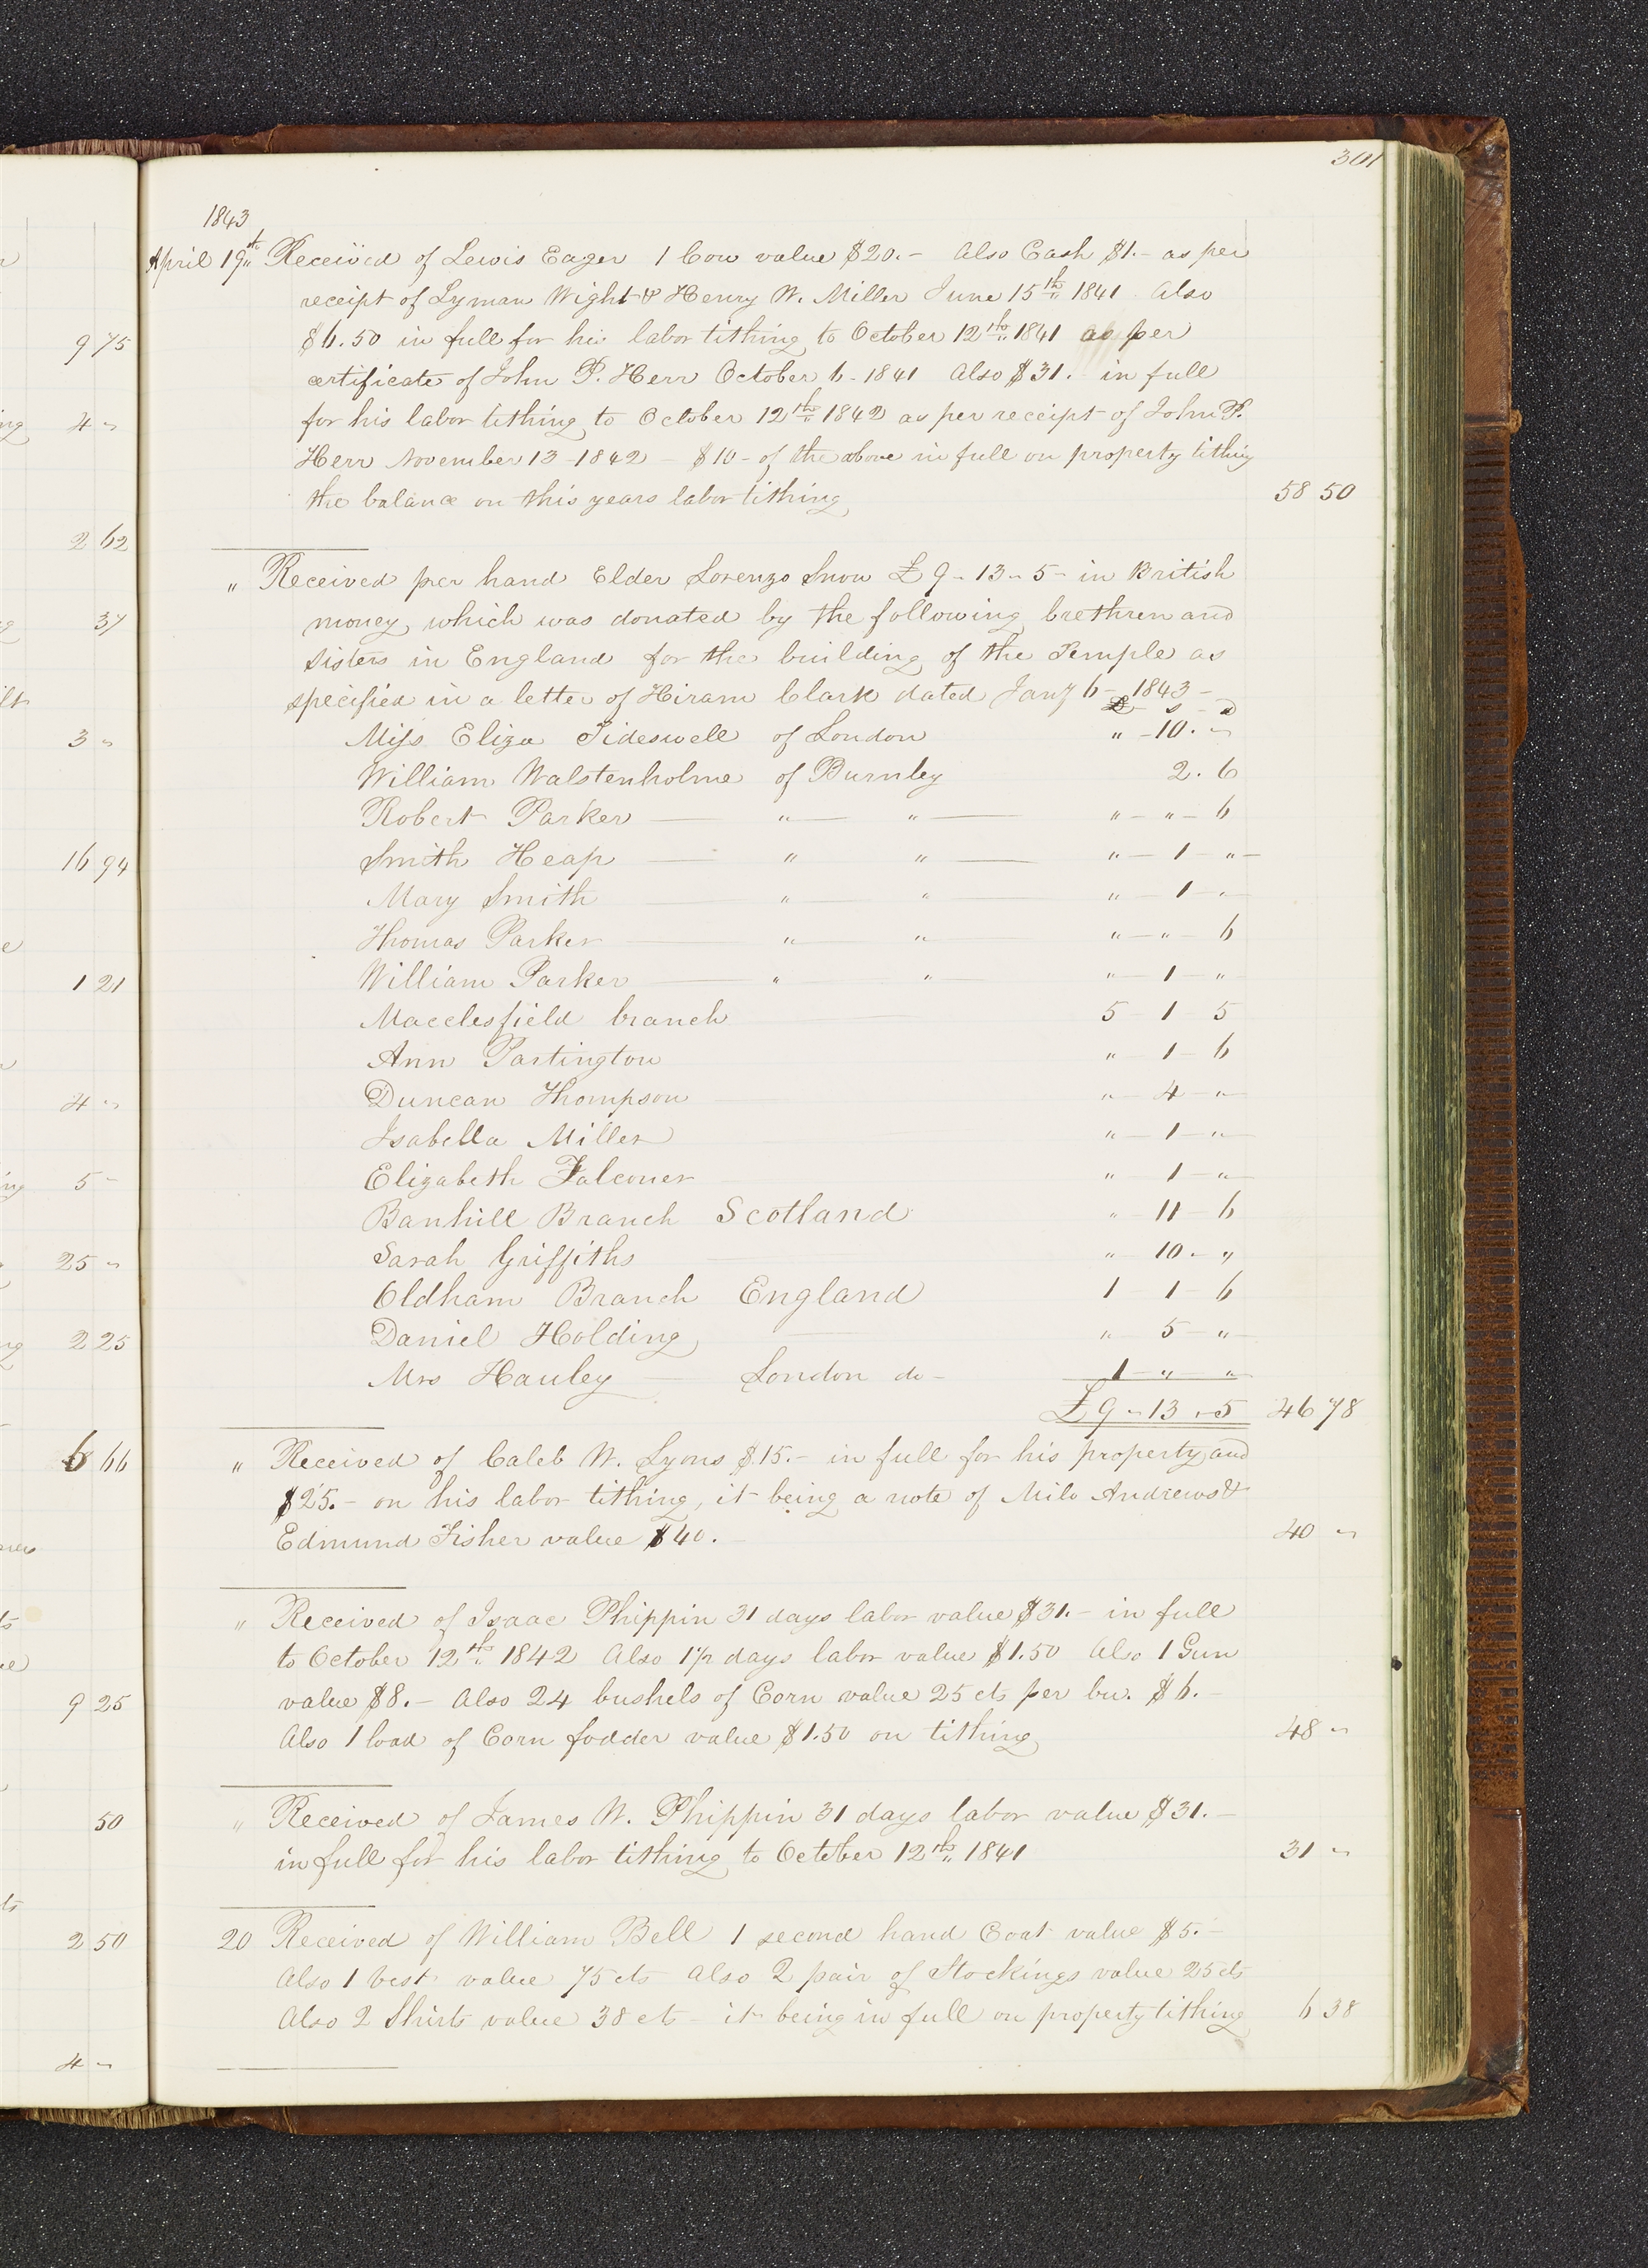 301
1843
April 19th Received of Lewis Eager 1 Cow value $20.- Also Cash $1.- as per
receipt of Lyman Wight & Henry W. Miller June 15th 1841 Also
$6.50 in full for his labor tithing to October 12th 1841 as per
certificate of John P. Herr October 6- 1841 Also $31.- in full
for his labor tithing to October 12th 1842 as per receipt of John P.
Herr November 13-1842 - $10- of the above in full on property tithing
the balance on this years labor tithing 58 50
" Received per hand Elder Lorenzo Snow £9-13-5- in British
money which was donated by the following brethren and
Sisters in England for the building of the Temple as
specified in a letter of Hiram Clark dated Jany 6- 1843-
£ - s - d
Miss Eliza Tideswell of London " -10. "
William Walstenholme of Burnley 2. 6
Robert Parker — " — " — " — " — 6
Smith Heap — " " — " — 1 — " —
Mary Smith — " " — " — 1 - "
Thomas Parker — " " — " — " — 6
William Parker — " " — " — 1 — "
Macclesfield branch 5 - 1 - 5
Ann Partington " 1 - 6
Duncan Thompson " — 4 — "
Isabella Miller " — 1 — "
Elizabeth Falconer " 1 — "
Banhill Branch Scotland " - 11 - 6
Sarah Griffiths " - 10 . - "
Oldham Branch England 1 1 - 6
Daniel Holding " 5 — "
Mrs Hauley — London do - 1 - " - "
£9-13-5 46 78
" Received of Caleb W. Lyons $15.- in full for his property and
$25.- on his labor tithing, it being a note of Milo Andrews &
Edmund Fisher value $40.- 40 "
" Received of Isaac Phippin 31 days labor value $31.- in full
to October 12th 1842 Also 1 1/2 days labor value $1.50 Also 1 Gun
value $8.- Also 24 bushels of Corn value 25 cts per bu. $6.-
Also 1 load of Corn fodder value $1.50 on tithing 48 "
" Received of James W. Phippin 31 days labor value $31.-
in full for his labor tithing to October 12th 1841 31 "
20 Received of William Bell 1 second hand Coat value $5.-
Also 1 vest value 75 cts Also 2 pair of Stockings value 25 cts
Also 2 Shirts value 38 cts - it being in full on property tithing 6 38
9 75
4 "
2 62
37
3 "
16 94
1 21
4 "
5 -
25 "
2 25
6 66
9 25
50
2 50
4 "